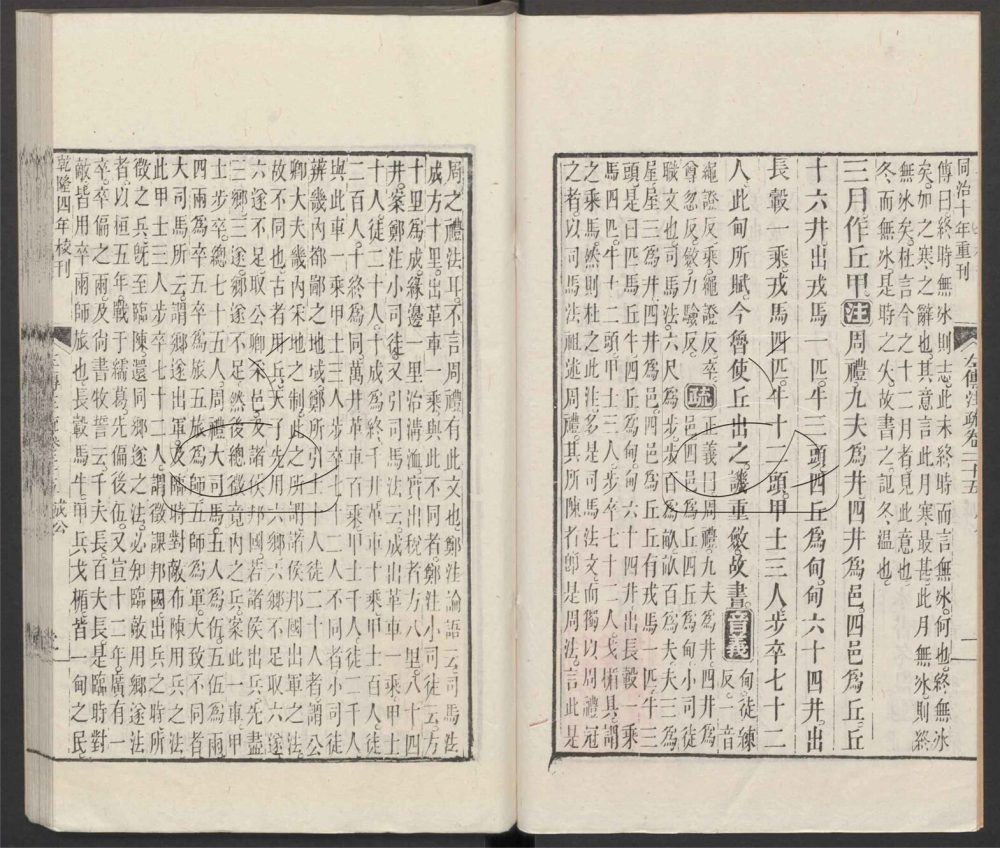 同治十年重刊
左傳注疏卷二十五
傳曰終時無冰則志此未終時而言無冰何也終無冰
矣加之寒之辭也其意言此月寒最甚此月無冰則終
無冰矣杜言今之十二月者見此意也
冬而無冰是時之失故書之記冬溫也
三月作丘甲注周禮九夫爲井四井爲邑四邑爲丘丘
十六井出戎馬一匹牛三頭四丘爲甸甸六十四井出
長轂一乘戎馬四匹牛十二頭甲士三人步卒七十二
人此甸所賦今魯使丘出之譏重斂故書音義甸徒練反一音
繩證反乘繩證反卒
尊忽反斂力驗反
疏正義曰周禮九夫爲井四井爲
邑四邑爲丘四丘爲甸小司徒
職文也司馬法六尺爲步步百爲畝畝百爲夫夫三爲
屋屋三爲井四井爲邑四邑爲丘丘有戎馬一匹牛三
頭是曰匹馬丘牛四丘爲甸甸六十四井出長轂一乘
馬四匹牛十二頭甲士三人步卒七十二人戈楯具謂
之乘馬然則杜之此注多是司馬法文而獨以周禮冠
之者以司馬法祖述周禮其所陳者卽是周法言此是
周之禮法耳不言周禮有此文也鄭注論語云司馬法
成方十里出革車一乘與此不同者鄭注小司徒云方
十里爲成緣邊一里治溝洫實出稅者方八里八十四
井案鄭注小司徒又引司馬法云成出革車一乘甲士
十人徒二十人十成爲終千井革車十乘甲士百人徒
二百人十終爲同萬井革車百乘甲士千人徒二千人
與此車一乘甲士三人步卒七十二人不同者小司徒
辨畿內都鄙之地域鄭所引士十人徒二十人者謂公
卿大夫畿內采地之制此之所謂諸侯邦國出軍之法
故不同也古者用兵天子先用六鄉六鄉不足取六遂
六遂不足取公卿采邑及諸侯邦國若諸侯出兵先盡
三鄉三遂鄉遂不足然後總徵竟內之兵案此一車甲
士步卒總七十五人周禮大司馬五人爲伍五伍爲兩
四兩爲卒五卒爲旅五旅爲師五師爲軍大致不同者
大司馬所云謂鄉遂出軍及臨時對敵布陳用兵之法
此甲士三人步卒七十二人謂徵課邦國出兵之時所
徵之兵旣至臨陳還同鄉遂之法必知臨敵用鄉遂法
者以桓五年戰于繻葛先偏後伍又宣十二年廣有一
卒卒偏之兩及尚書牧誓云千夫長百夫長是臨時對
敵皆用卒兩師旅也長轂馬牛甲兵戈楯皆一甸之民
乾隆四年校刊
成公